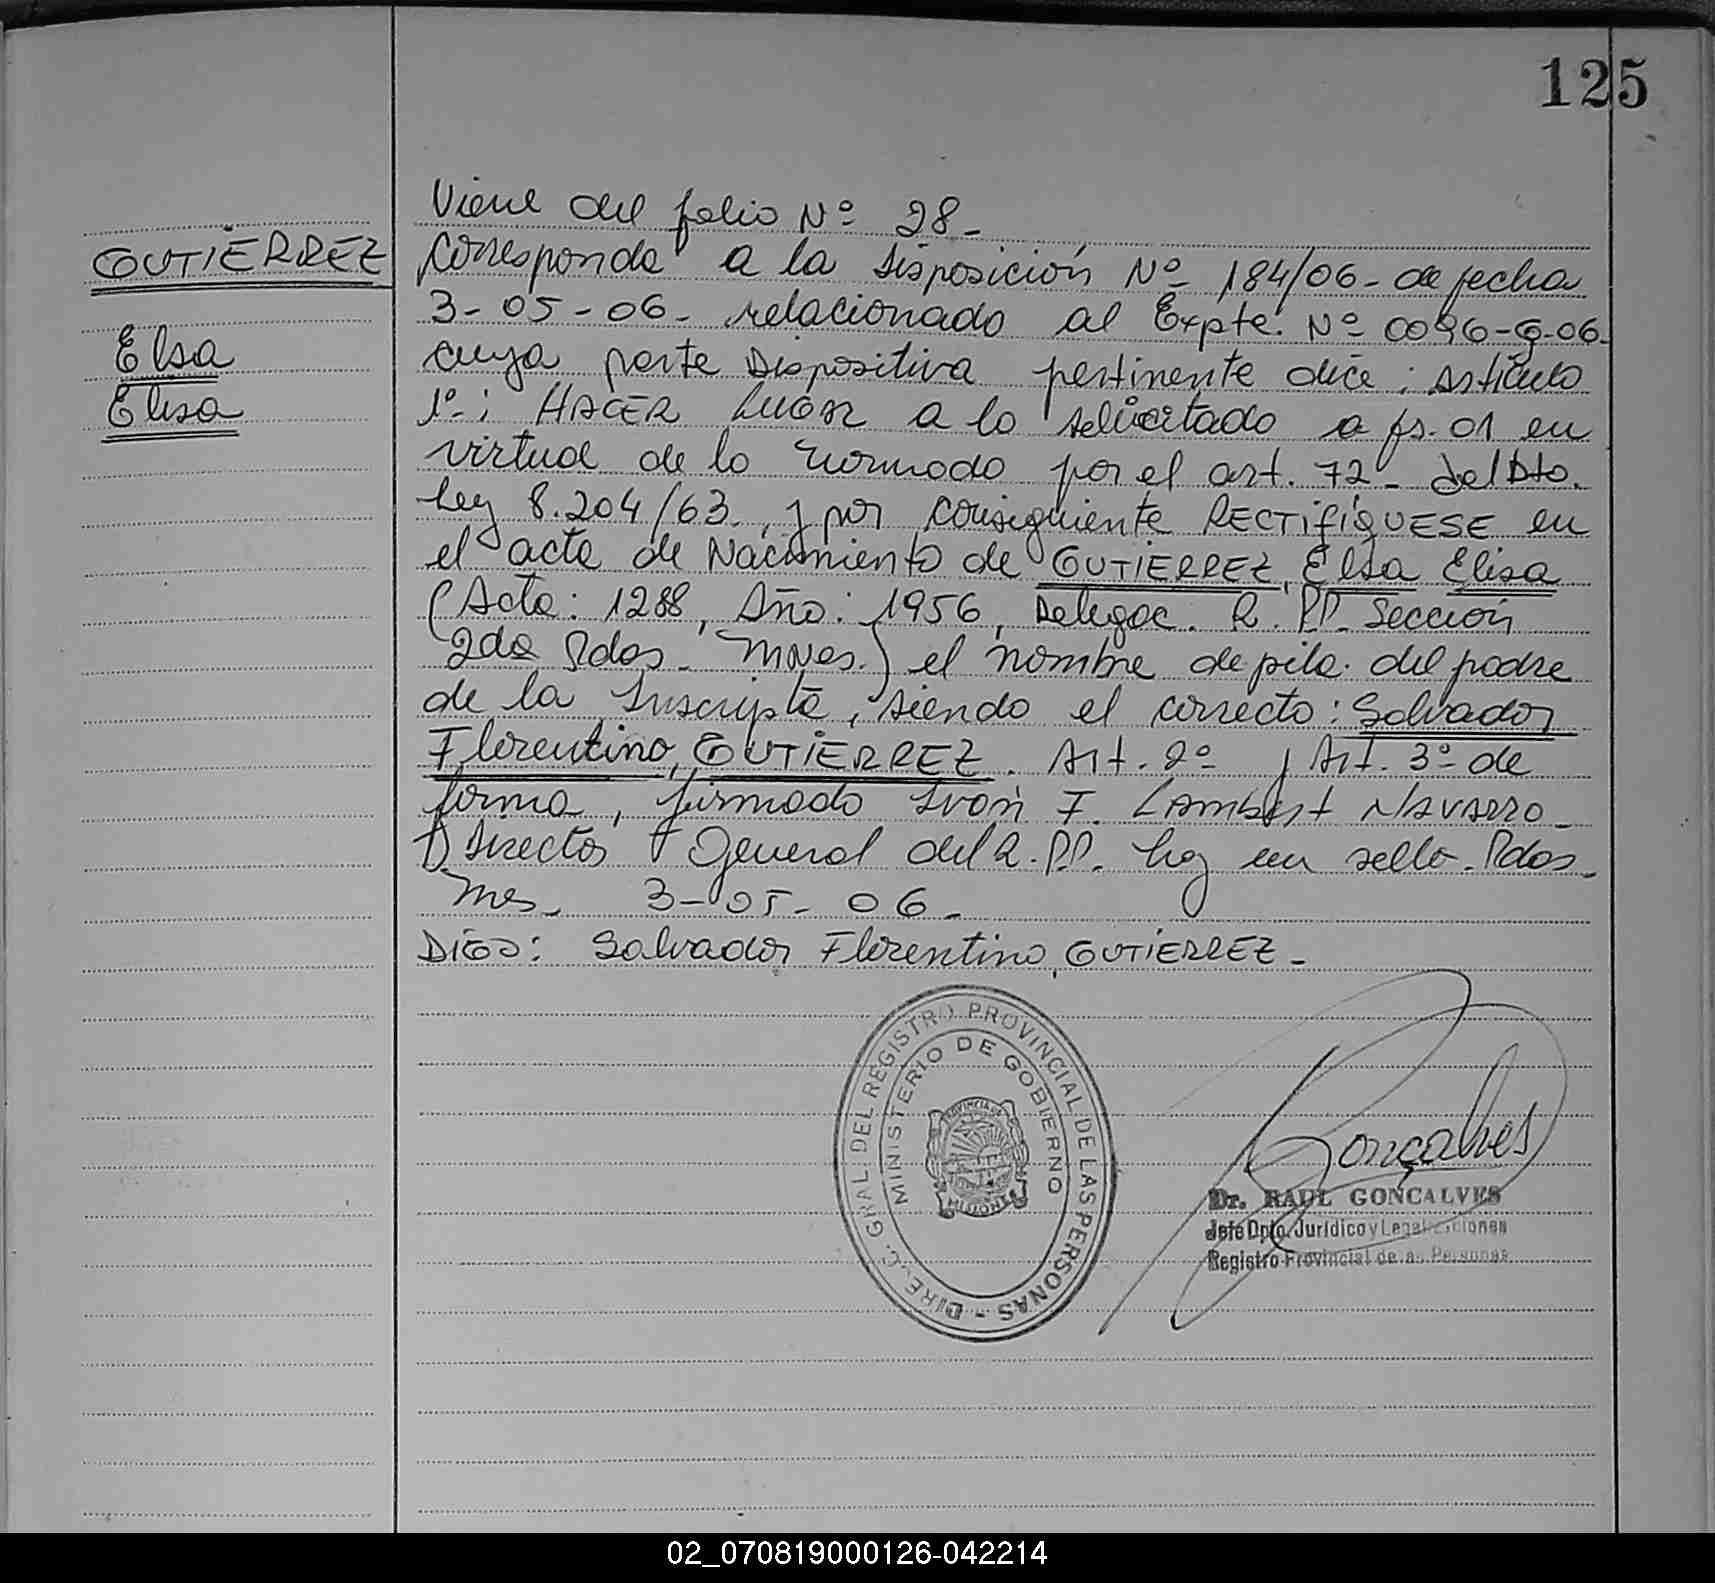 125
Viene del folio Nº 28-
GUTIÉRREZ
Corresponde a la Disposición Nº 184/06- de fecha
3-05-06- relacionado al Expte. Nº 0096-G-06.
Elsa
cuya parte Dispositiva pertinente dice: Artículo
Elisa
1º-: HACER Lugar a lo solicitado a fs. 01 en
virtud de lo normado por el art. 72- del Dto.
Ley 8.204/63, y por consiguiente RECTIFÍQUESE en
el acta de Nacimiento de GUTIÉRREZ, Elsa Elisa
(Acta: 1288, Año: 1956, Delegac. R. PP. Sección
2da Pdas- Mnes.) el nombre de pila del padre
de la Inscripta, siendo el correcto: Salvador
Florentino, GUTIÉRREZ. Art. 2º y Art. 3º de
forma, firmado Iván F. Lambert Navarro-
Director General del R.PP. hay un sello. Pdas-
Mes. 3-05-06-
DIGO: Salvador Florentino, GUTIÉRREZ-
DIREC. GRAL. DEL REGISTRO PROVINCIAL DE LAS PERSONAS -
MINISTERIO DE GOBIERNO
PROVINCIA DE
MISIONES
Gonçalves
Dr. RAUL GONCALVES
Jefe Dpto. Jurídico y Legalizaciones
Registro Provincial de las Personas
02_070819000126-042214